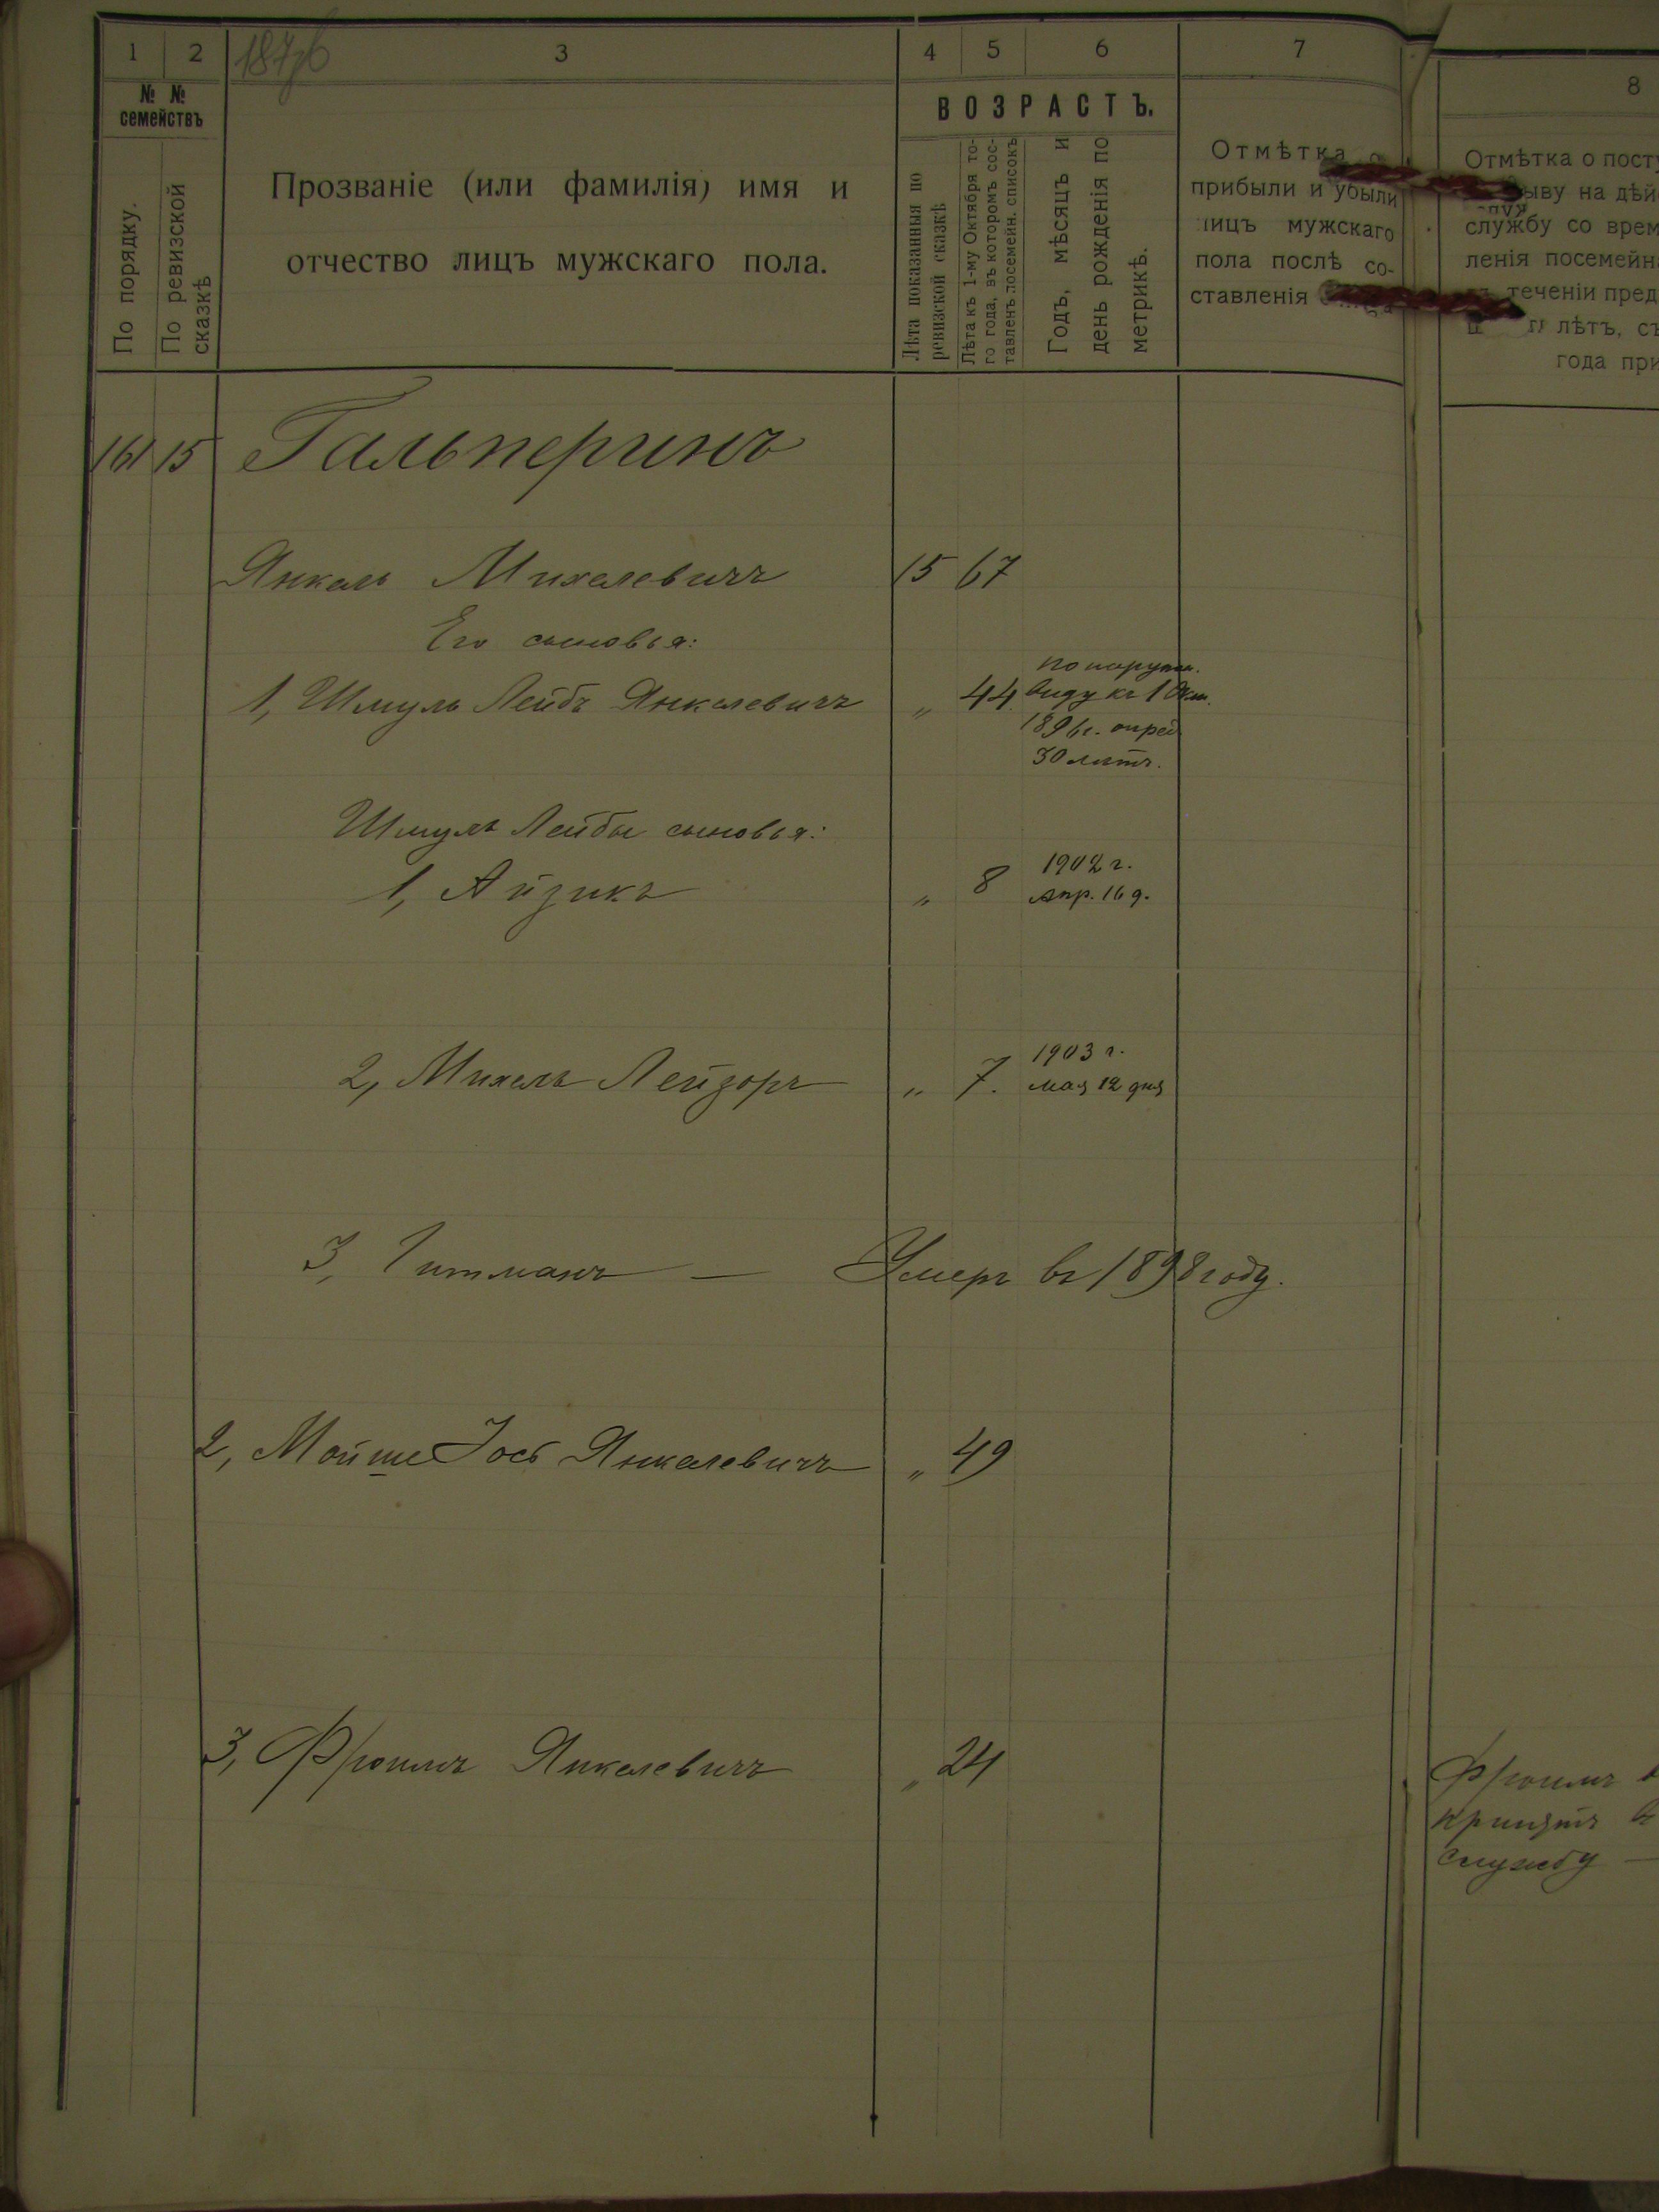 1 2 187 3 4 5 6 7 8
№ № семействъ
По порядку.
По ревизской сказкѣ
Прозваніе (или фамилія) имя и
отчество лицъ мужскаго пола.
ВОЗРАСТЪ.
Лѣта показанныя по
ревизской сказкѣ
Лѣта къ 1-му Октября то-
го года, въ которомъ сос-
тавленъ посемейн. списокъ
Годъ, мѣсяцъ и
день рожденія по
метрикѣ.
Отмѣтка о
прибыли и убыли
лицъ мужскаго
пола послѣ со-
ставленія
Отмѣтка о посту
ыву на дѣй
службу со врем
ленія посемейн
теченіи пред
лѣтъ, съ
года при
161 15 Гальперинъ
Янкель Михелевичъ 15 67
Его сыновья:
1, Шмуль Лейбъ Янкелевичъ „ 44
по наружн.
виду къ 1 Окт.
1896г. опред
30 лѣтъ.
Шмуль Лейбы сыновья:
1, Айзикъ „ 8 1902 г.
Апр. 16 д.
2, Михель Лейзоръ „ 7. 1903 г.
мая 12 дня
3, Гитманъ — Умеръ въ 1898 году.
2, Мойше Іось Янкелевичъ „ 49
3, Фроимъ Янкелевичъ „ 24
Фроимъ
принятъ в
службу —